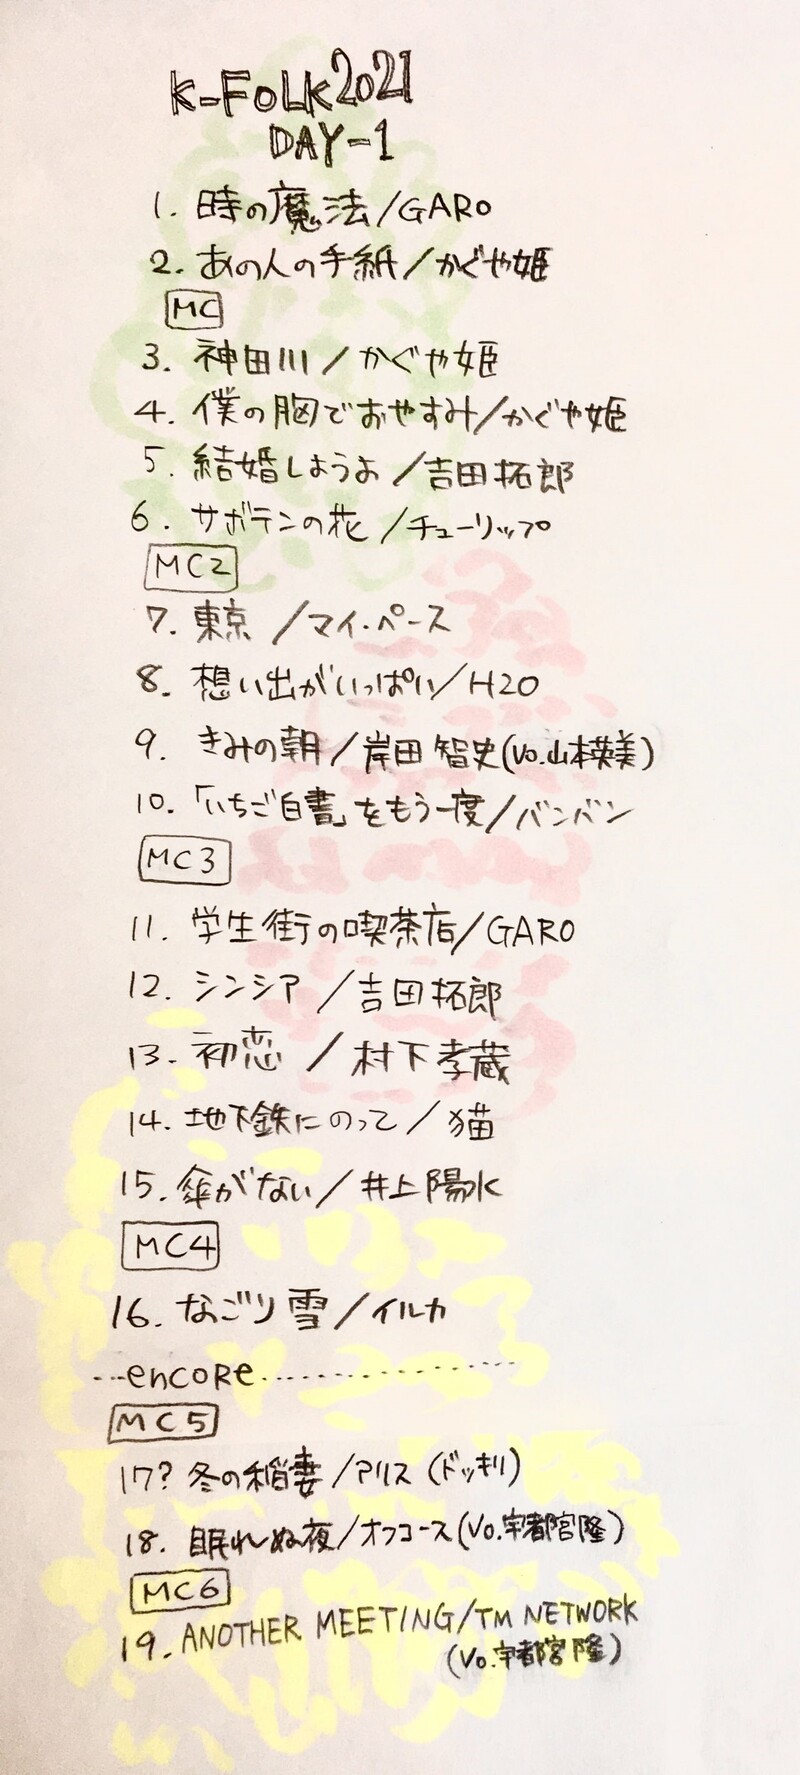 K-FOLK2021
DAY-1
1. 時の魔法/GARO
2. あの人の手紙/かぐや姫
MC
3. 神田川/かぐや姫
4. 僕の胸でおやすみ/かぐや姫
5. 結婚しようよ/吉田拓郎
6. サボテンの花/チューリップ
MC2
7. 東京/マイ・ペース
8. 想い出がいっぱい/H2O
9. きみの朝/岸田智史(Vo.山本英美)
10.「いちご白書」をもう一度/バンバン
MC3
11. 学生街の喫茶店/GARO
12. シンシア/吉田拓郎
13. 初恋/村下孝蔵
14. 地下鉄にのって/猫
15. 傘がない/井上陽水
MC4
16. なごり雪/イルカ
---encoRe..............
MC5
17? 冬の稲妻/アリス(ドッキリ)
18. 眠れぬ夜/オフコース(Vo.宇都宮隆)
MC6
19. ANOTHER MEETING/TM NETWORK
(Vo.宇都宮隆)